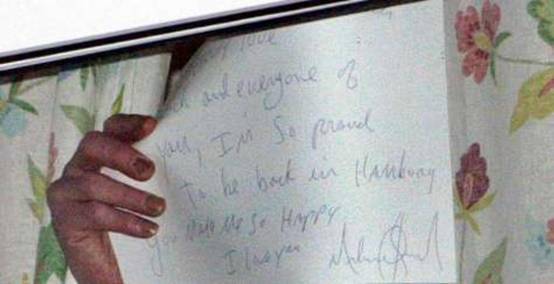 love
and everyone of
you, I'm So proud
to be back in Hamburg
you Make Me So HAPPY
I love you